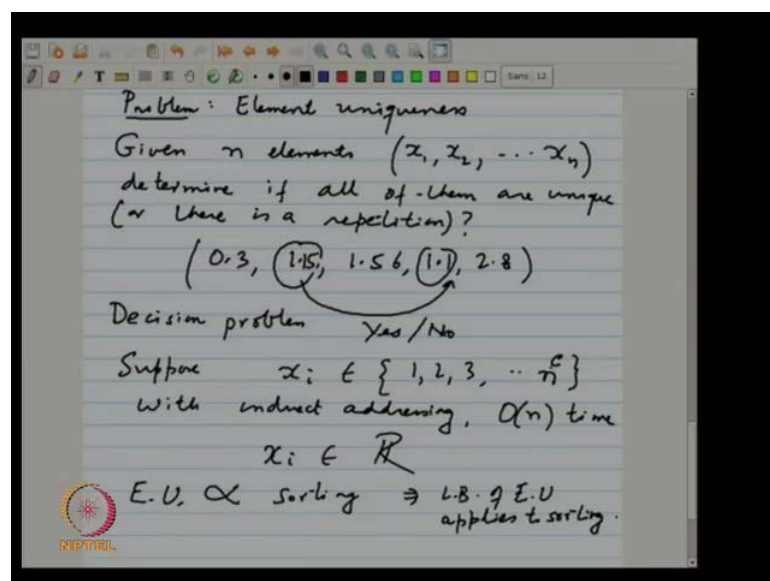 T
Sans 12
Problem : Element uniqueness
Given n elements (x₁, x₂, ... xₙ)
determine if all of them are unique
(or there is a repetition)?
(0.3, 1.15, 1.56, 1.1, 2.8)
Decision problem Yes/No
Suppose xᵢ ∈ {1, 2, 3, .. nᶜ}
With indirect addressing, O(n) time
xᵢ ∈ ℝ
E.U. ∝ sorting ⇒ L.B. of E.U
applies to sorting.
NPTEL